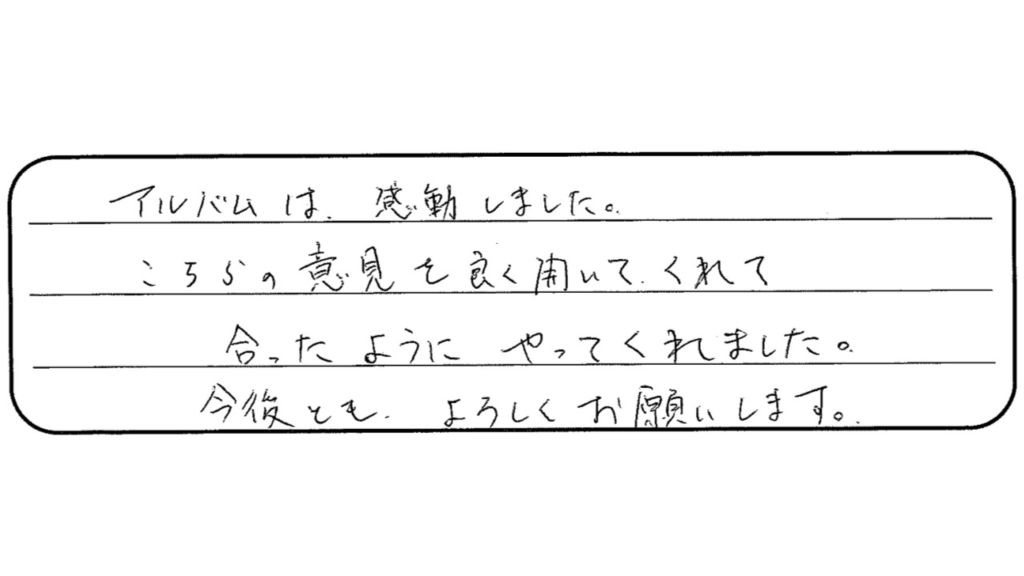 アルバムは、感動しました。
こちらの意見を良く聞いてくれて
合ったようにやってくれました。
今後とも、よろしくお願いします。